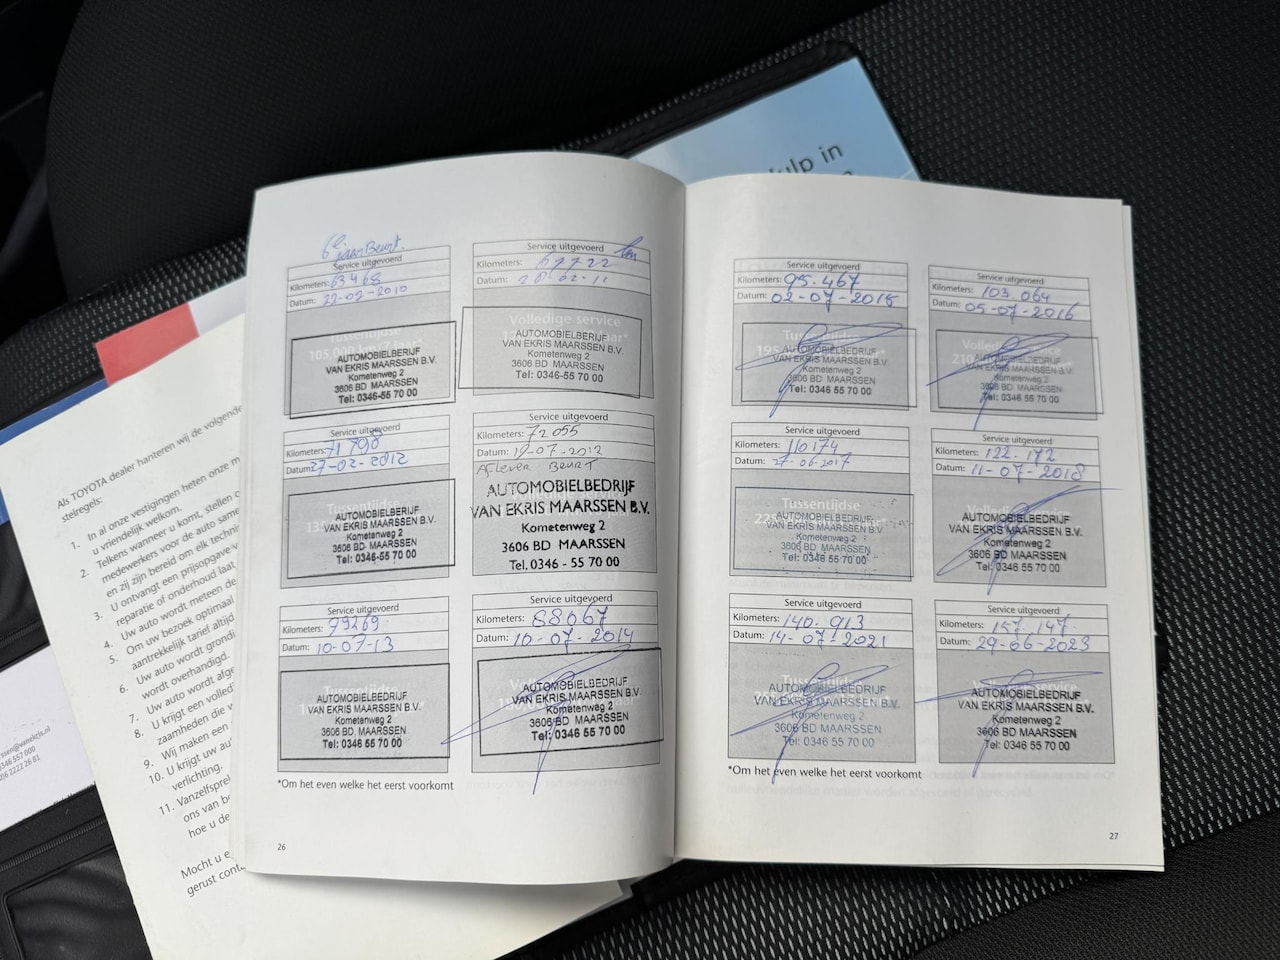 ulp in
Als TOYOTA dealer hanteren wij de volgende
stelregels:
1. In al onze vestigingen heten onze m
u vriendelijk welkom.
2. Telkens wanneer u komt, stellen o
medewerkers voor de auto same
en zij zijn bereid om elk technis
3. U ontvangt een prijsopgave v
reparatie of onderhoud laat
4. Uw auto wordt meteen de
5. Om uw bezoek optimaal
aantrekkelijk tarief altijd
6. Uw auto wordt grondi
wordt overhandigd.
7. Uw auto wordt afge
8. U krijgt een volled
zaamheden die v
9. Wij maken een
10. U krijgt uw au
verlichting.
11. Vanzelfsprel
ons van be
hoe u de
Mocht u e
gerust cont
6e jaarBeurt.
Service uitgevoerd
Kilometers: 63468
Datum: 22-02-2010
Tussentijdse
105.000 km/7 jaar*
AUTOMOBIELBERIJF
VAN EKRIS MAARSSEN B.V.
Kometenweg 2
3606 BD MAARSSEN
Tel: 0346-55 70 00
Service uitgevoerd
Kilometers: 67722 km
Datum: 28-02-11
Volledige service
AUTOMOBIELBERIJF
VAN EKRIS MAARSSEN B.V.
Kometenweg 2
3606 BD MAARSSEN
Tel: 0346-55 70 00
Service uitgevoerd
Kilometers: 71798
Datum: 27-02-2012
Tussentijdse
AUTOMOBIELBEDRIJF
VAN EKRIS MAARSSEN B.V.
Kometenweg 2
3606 BD MAARSSEN
Tel: 0346-55 70 00
Service uitgevoerd
Kilometers: 72055
Datum: 19-07-2012
Aflever Beurt
AUTOMOBIELBEDRIJF
VAN EKRIS MAARSSEN B.V.
Kometenweg 2
3606 BD MAARSSEN
Tel. 0346 - 55 70 00
Service uitgevoerd
Kilometers: 79269
Datum: 10-07-13
Tussentijdse
AUTOMOBIELBEDRIJF
VAN EKRIS MAARSSEN B.V.
Kometenweg 2
3606 BD MAARSSEN
Tel: 0346 55 70 00
Service uitgevoerd
Kilometers: 88067
Datum: 10-07-2014
Volledige service
AUTOMOBIELBEDRIJF
VAN EKRIS MAARSSEN B.V.
Kometenweg 2
3606 BD MAARSSEN
Tel: 0346 55 70 00
*Om het even welke het eerst voorkomt
26
Service uitgevoerd
Kilometers: 95.467
Datum: 02-07-2015
Tussentijdse
AUTOMOBIELBEDRIJF
VAN EKRIS MAARSSEN B.V.
Kometenweg 2
3606 BD MAARSSEN
Tel: 0346 55 70 00
Service uitgevoerd
Kilometers: 103.064
Datum: 05-07-2016
AUTOMOBIELBEDRIJF
VAN EKRIS MAARSSEN B.V.
Kometenweg 2
3606 BD MAARSSEN
Tel: 0346 55 70 00
Service uitgevoerd
Kilometers: 110174
Datum: 27-06-2017
Tussentijdse
AUTOMOBIELBEDRIJF
VAN EKRIS MAARSSEN B.V.
Kometenweg 2
3606 BD MAARSSEN
Tel: 0346 55 70 00
Service uitgevoerd
Kilometers: 122.172
Datum: 11-07-2018
Volledige service
AUTOMOBIELBEDRIJF
VAN EKRIS MAARSSEN B.V.
Kometenweg 2
3606 BD MAARSSEN
Tel: 0346 55 70 00
Service uitgevoerd
Kilometers: 140.913
Datum: 14-07-2021
Tussentijdse
AUTOMOBIELBEDRIJF
VAN EKRIS MAARSSEN B.V.
Kometenweg 2
3606 BD MAARSSEN
Tel: 0346 55 70 00
Service uitgevoerd
Kilometers: 157.147
Datum: 29-06-2023
AUTOMOBIELBEDRIJF
VAN EKRIS MAARSSEN B.V.
Kometenweg 2
3606 BD MAARSSEN
Tel: 0346 55 70 00
*Om het even welke het eerst voorkomt
27